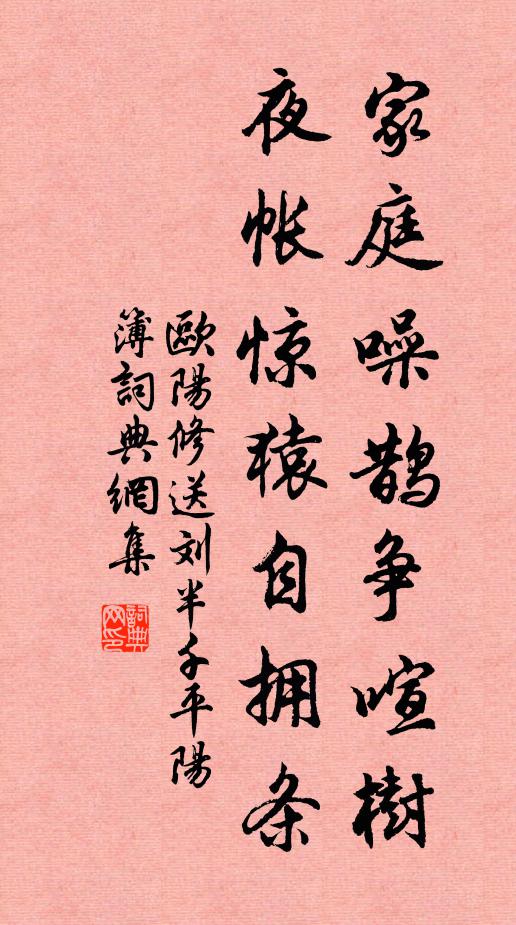 家庭噪鹊争喧樹
夜帐惊猿自拥条
歐陽修送刘半千平陽
簿詞典網集
詞典网印